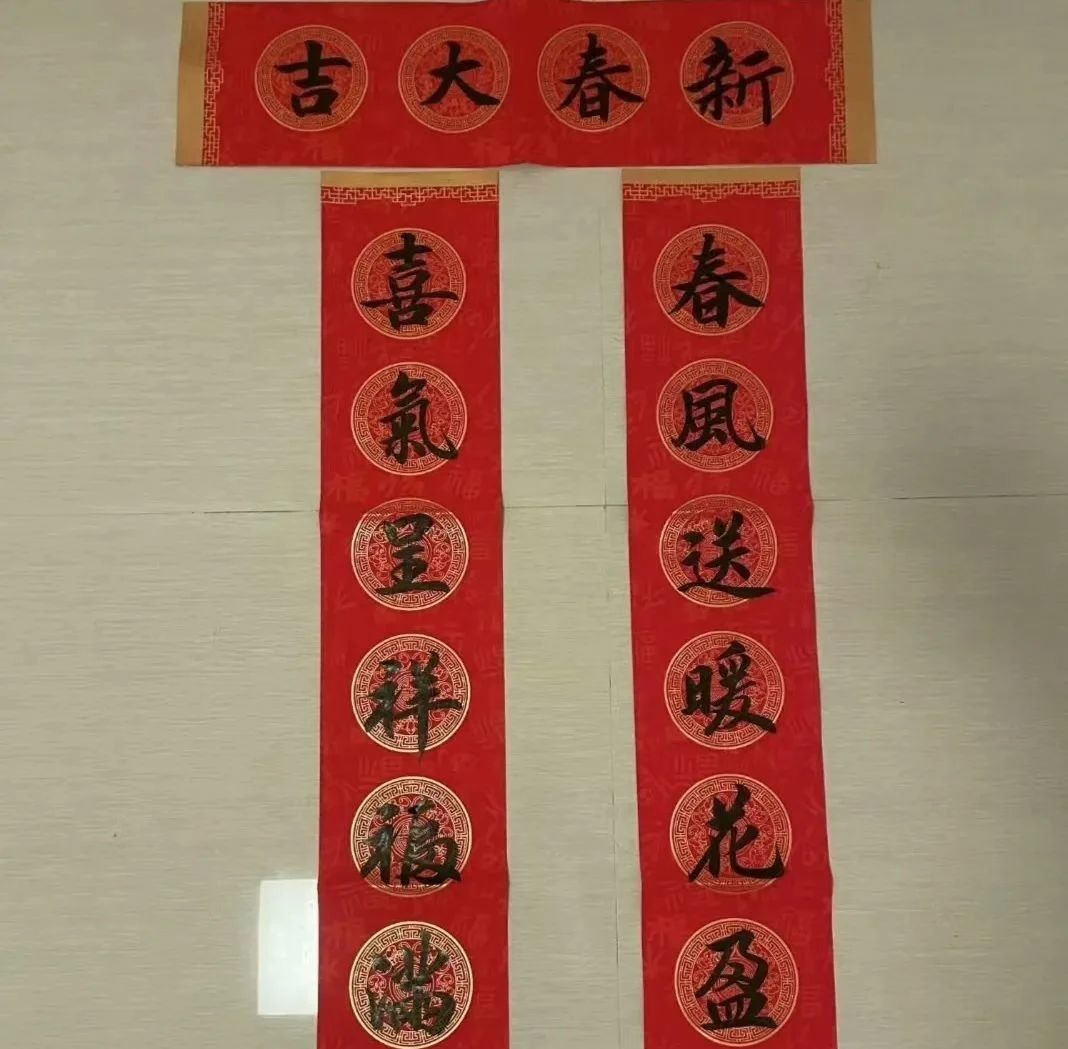 新春大吉
春風送暖花盈
喜氣呈祥福滿